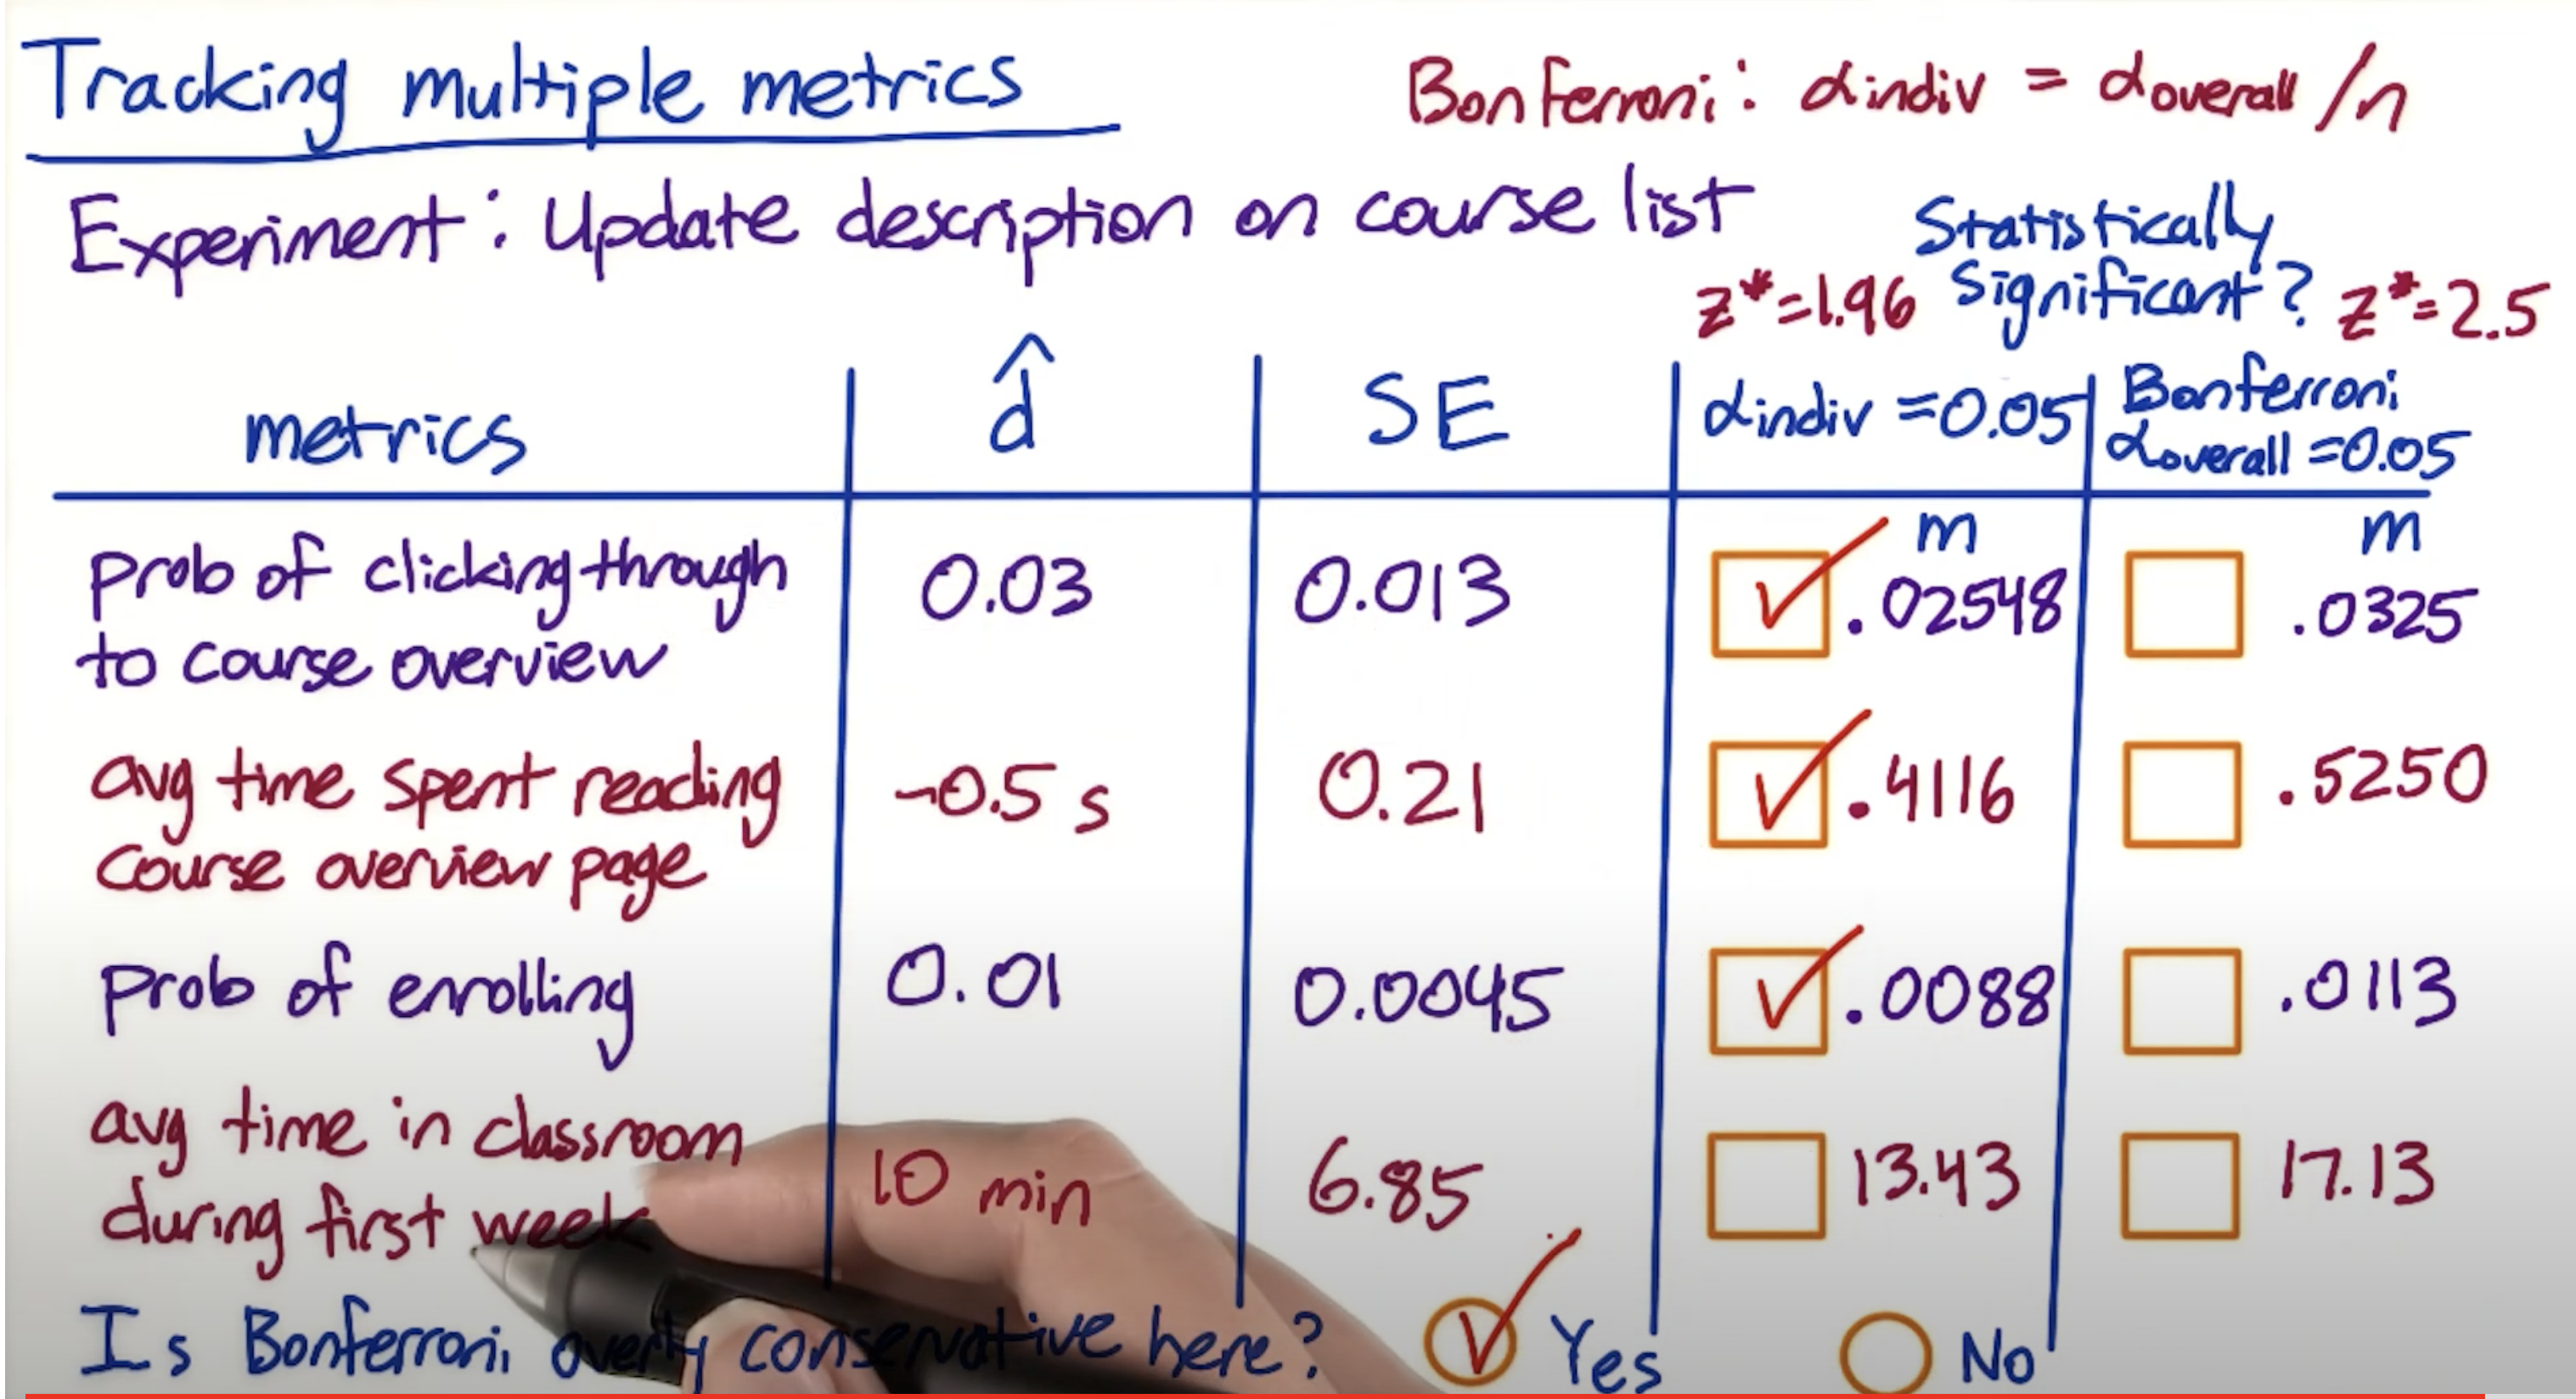 Tracking multiple metrics
Bonferroni: αindiv = αoverall/n
Experiment: Update description on course list
Statistically
Significant?
z*=1.96
z*=2.5
metrics
d̂
SE
αindiv =0.05
Bonferroni
αoverall =0.05
m
m
prob of clicking through
to course overview
0.03
0.013
.02548
.0325
avg time spent reading
course overview page
-0.5 s
0.21
.4116
.5250
prob of enrolling
0.01
0.0045
.0088
.0113
avg time in classroom
during first week
10 min
6.85
13.43
17.13
Is Bonferroni overly conservative here?
Yes
No